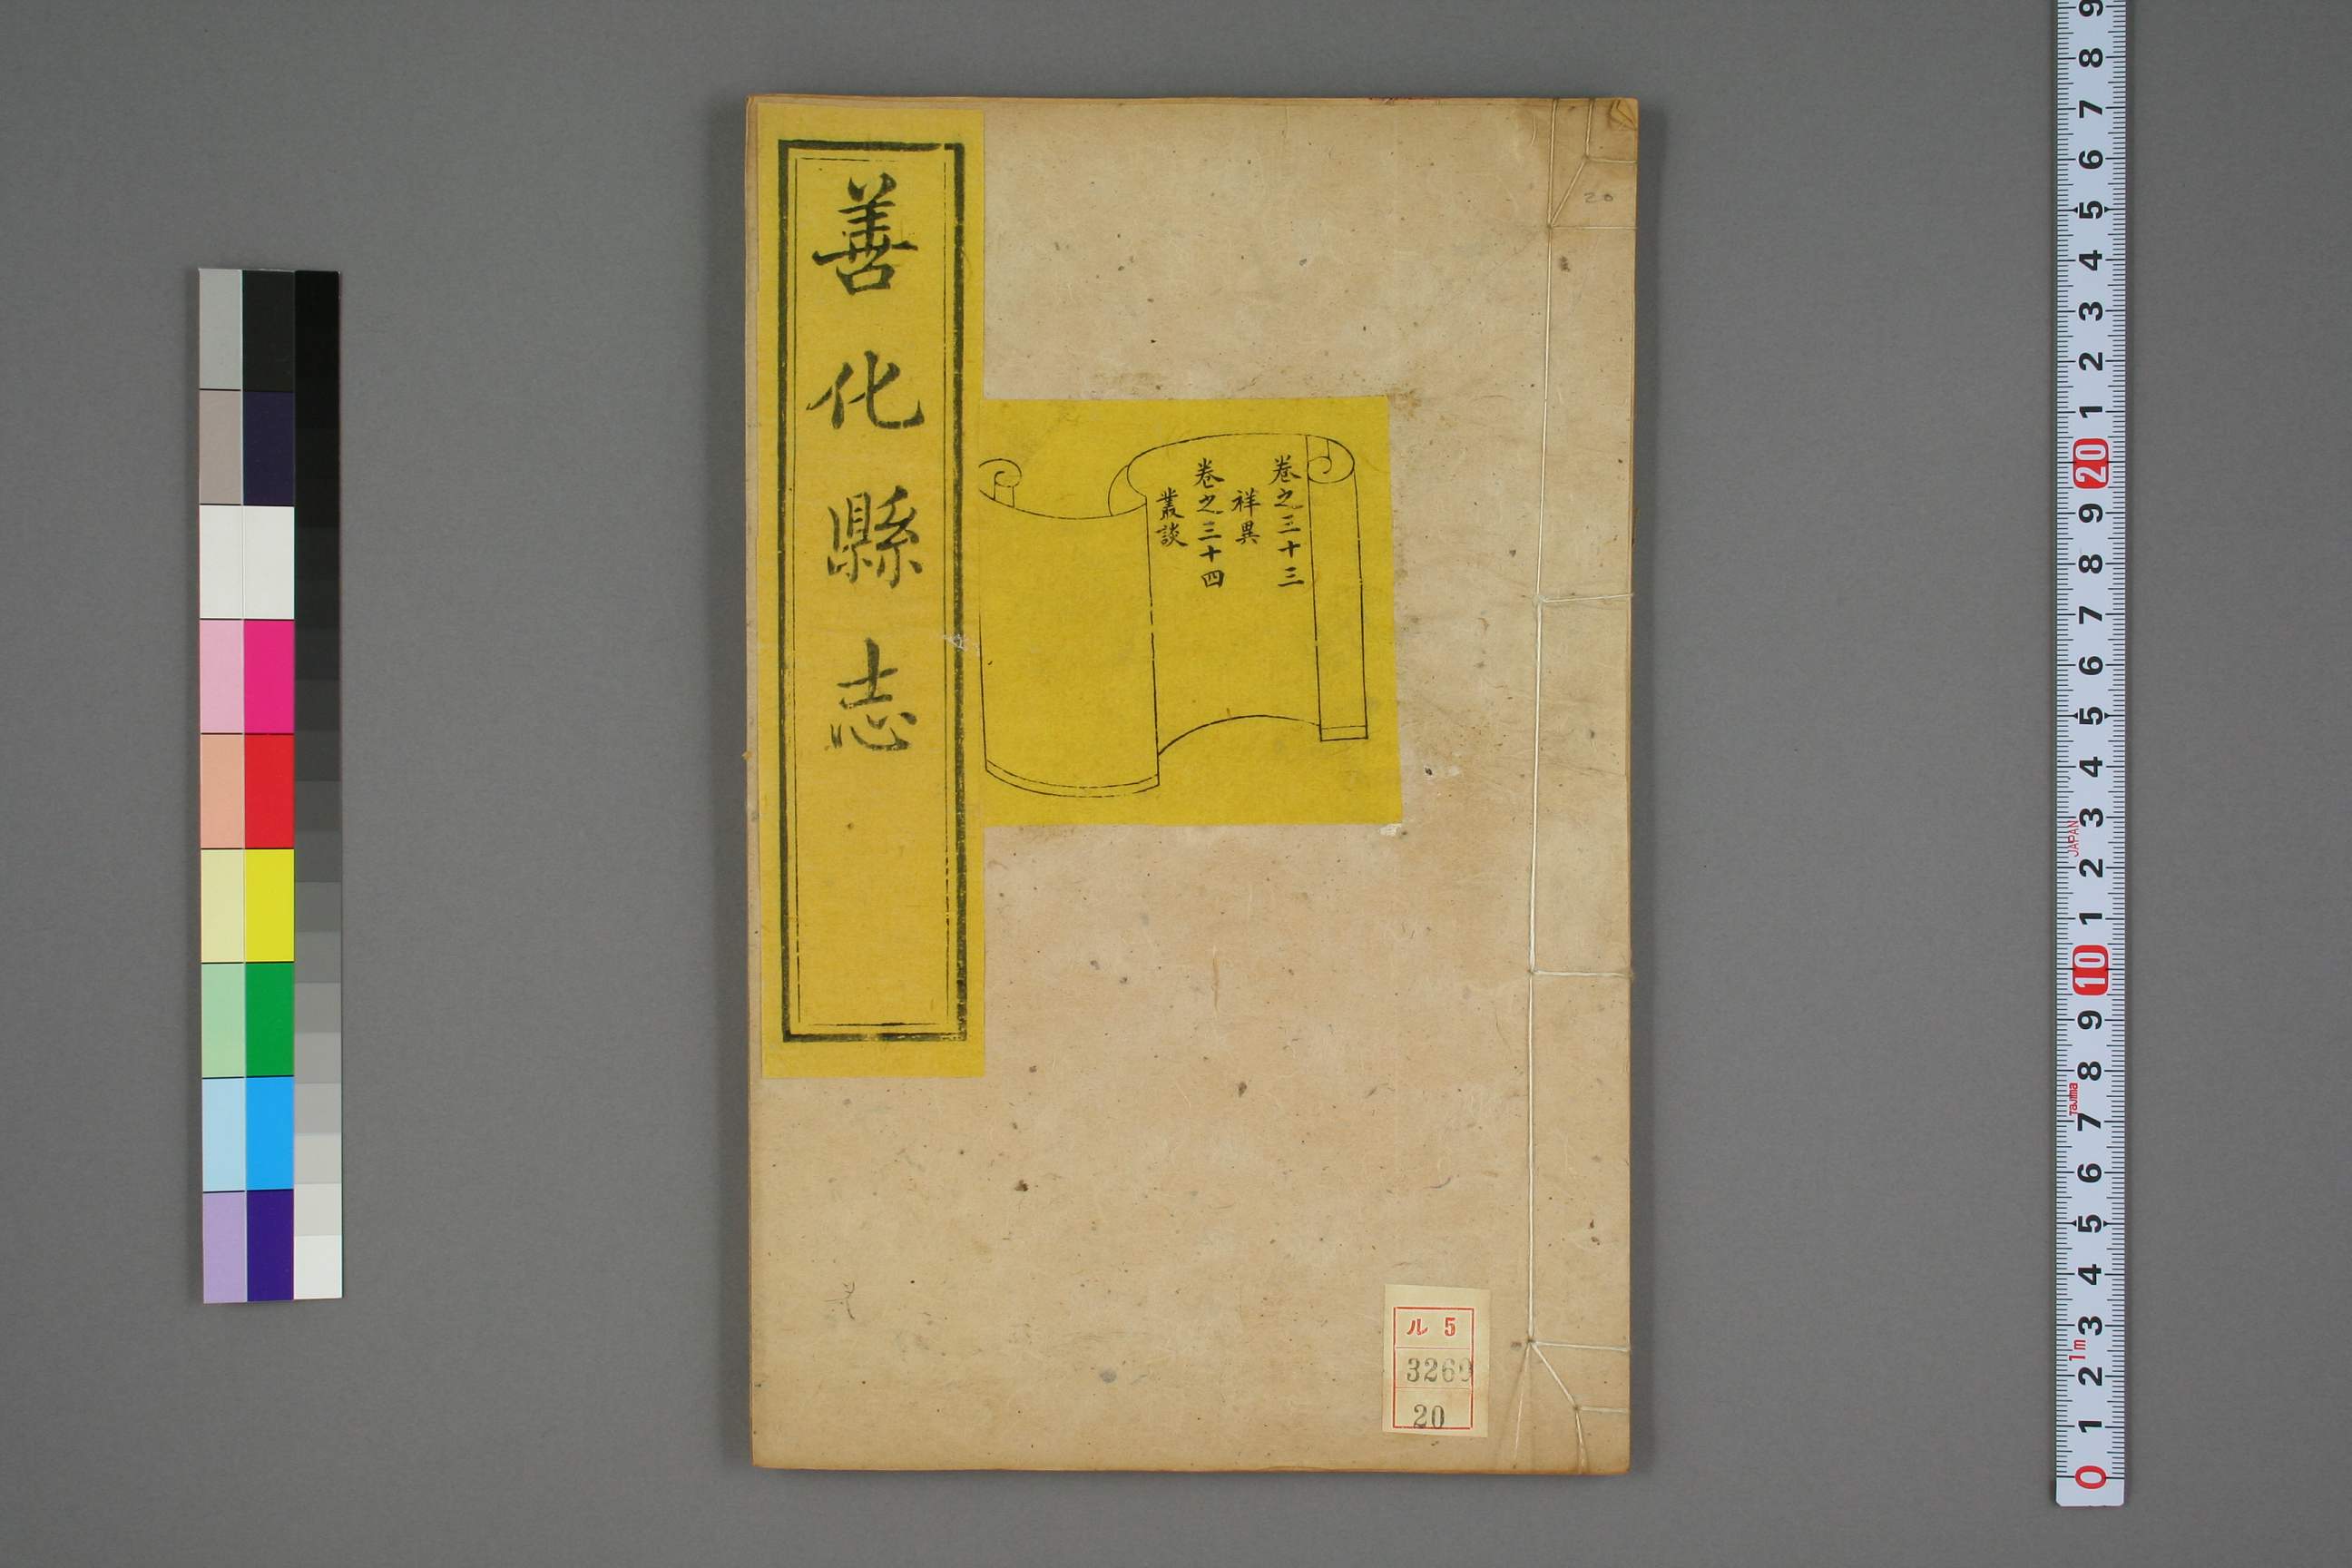 善化縣志
卷之三十三
祥異
卷之三十四
叢談
20
ル 5
3269
20
9
8
7
6
5
4
3
2
1
20
9
8
7
6
5
4
3
2
1
10
9
8
7
6
5
4
3
2
1
0
JAPAN
Tajima
1m